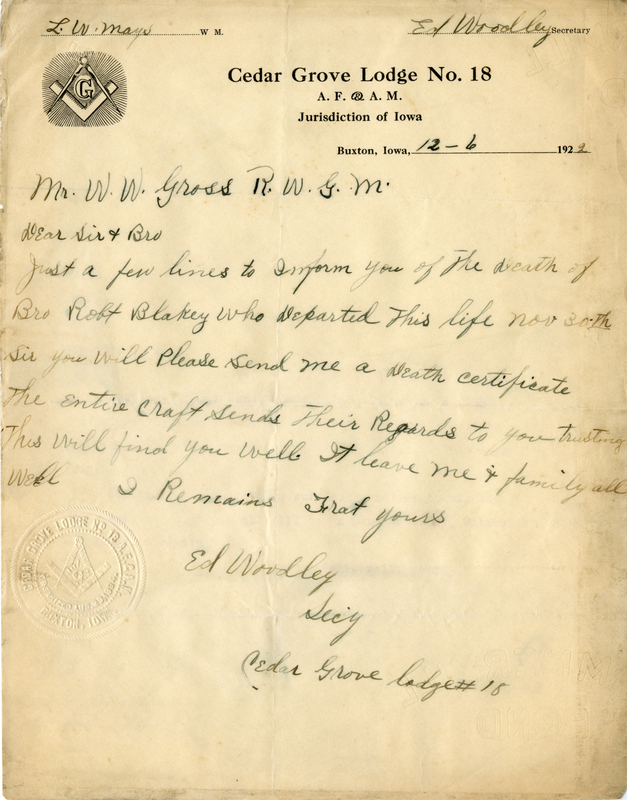 L. W. Mays W M. Ed Woodley Secretary
G
Cedar Grove Lodge No. 18
A. F. & A. M.
Jurisdiction of Iowa
Buxton, Iowa, 12-6 1922
Mr. W. W. Gross R. W. G. M.
Dear Sir & Bro
Just a few lines to Inform you of the Death of
Bro Robt Blakey who Departed This life nov 30th
Sir you will Please send me a Death certificate
The Entire craft sends Their Regards to you trusting
This will find you well. It leave me & family all
Well I Remains Frat yours
Ed Woodley
Secy
Cedar Grove lodge # 18
CEDAR GROVE LODGE NO. 18 A.F.& A.M.
BUXTON, IOWA